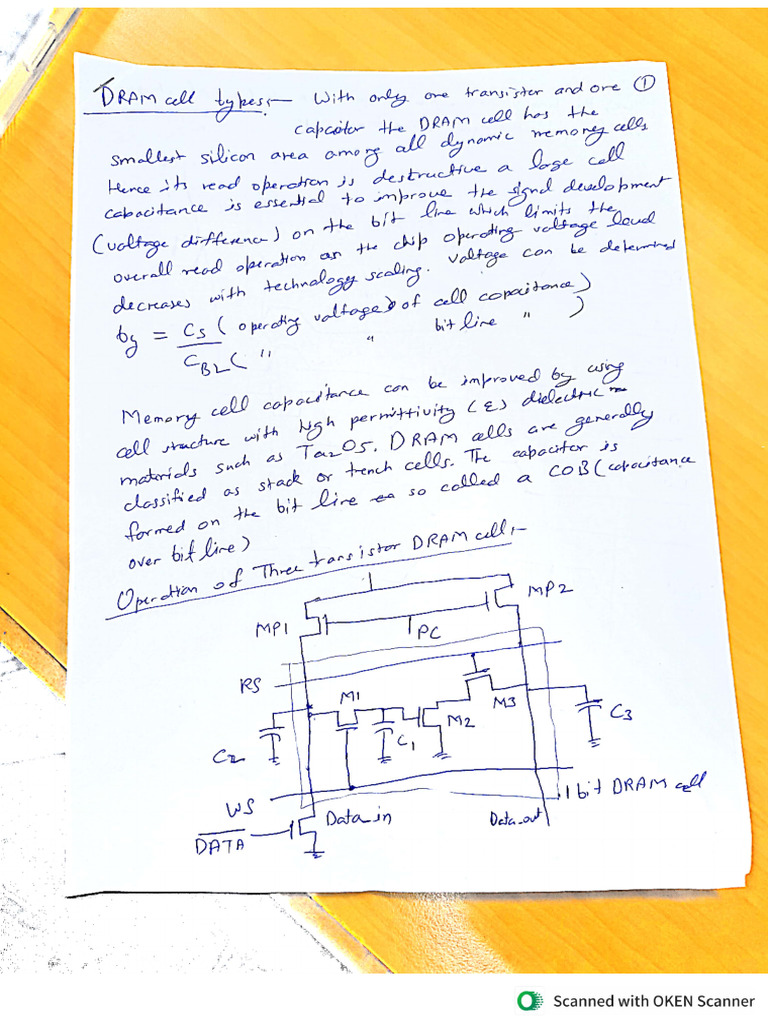 DRAM cell types:- With only one transistor and one ①
capcaitor the DRAM cell has the
smallest silicon area among all dynamic memory cells
Hence its read operation is destructive a lage cell
capacitance is essential to improve the signal development
(voltage difference) on the bit line which limits the
overall read operation as the chip operating voltage load
decreases with technology scaling. Voltage can be determined
by = Cs ( operating voltage) of cell capacitance)
CBL ( " " bit line " )
Memory cell capacitance can be improved by using
cell structure with high permittivity (ε) dielectric
materials such as Ta2O5. DRAM cells are generally
classified as stack or trench cells. The capacitor is
formed on the bit line so called a COB (capacitance
over bit line)
Operation of Three transistor DRAM cell:-
MP1
MP2
PC
RS
M1
M2
M3
C1
C2
C3
WS
1 bit DRAM cell
Data_in
Data_out
DATA
Scanned with OKEN Scanner